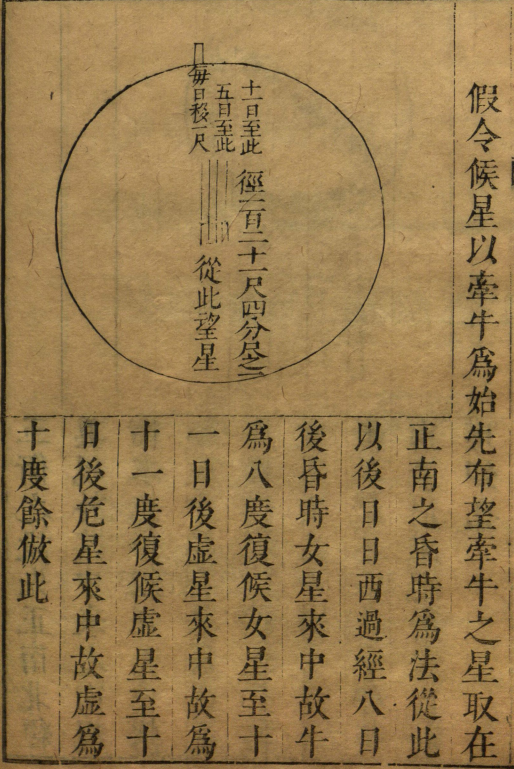 假令候星以牽牛爲始先布望牽牛之星取在
正南之昏時爲法從此
以後日日西過經八日
後昏時女星來中故牛
爲八度復候女星至十
一日後虛星來中故爲
十一度復候虛星至十
日後危星來中故虛爲
十度餘倣此
十一日至此
五日至此
每日移一尺
徑一百二十一尺四分尺之一
從此望星